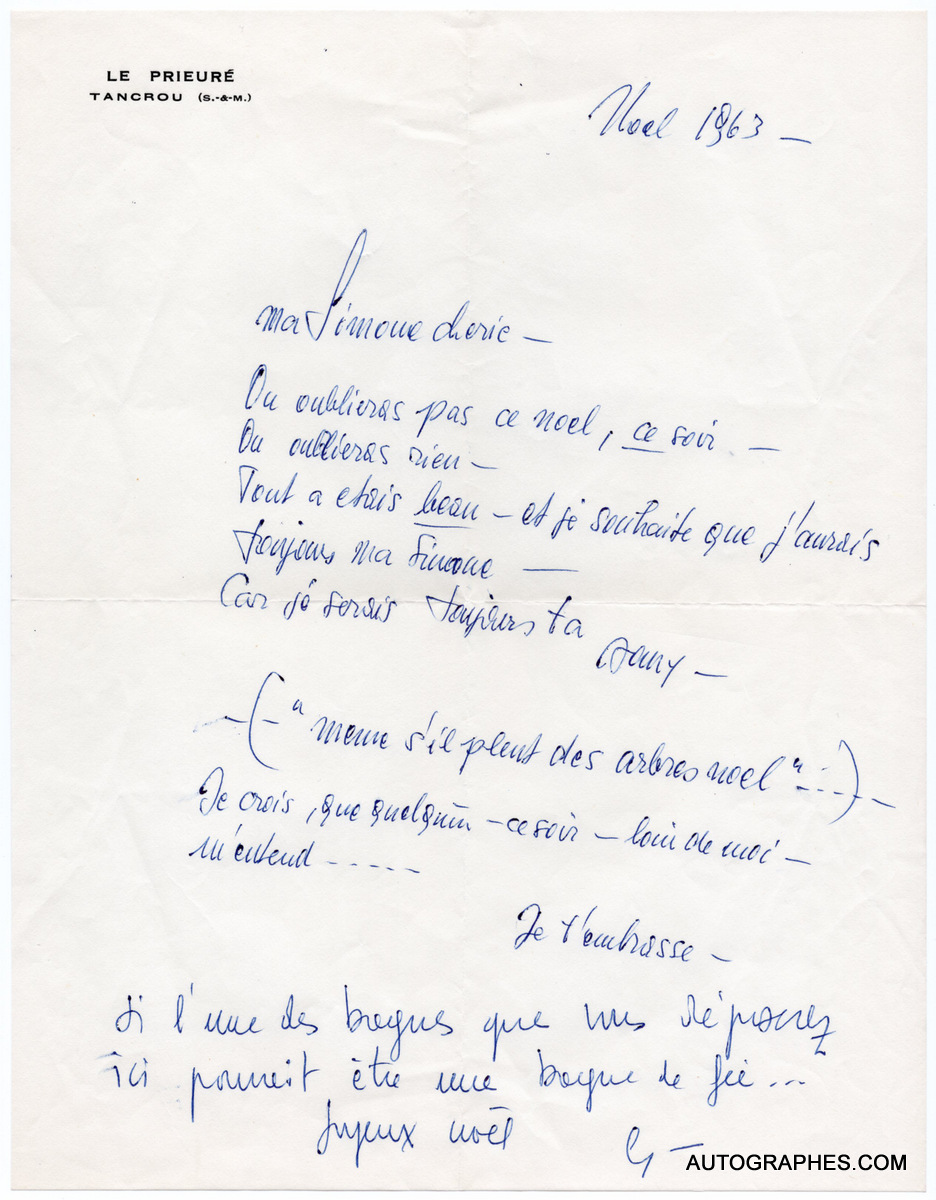 LE PRIEURÉ
TANCROU (S.-&-M.)
Noel 1963 —
ma Simone cherie —
On oublieras pas ce noel, ce soir —
On oublieras rien —
Tout a etais beau — et je souhaite que j'aurais
toujours ma Simone —
Car je serais toujours ta
Romy —
— ( — " meme s'il pleut des arbres noel " ..... ) —
Je crois, que quelqu'un — ce soir — loin de moi —
m'entend - - - - -
Je t'embrasse —
Si l'une des bagues que vous déposez
ici pouvait être une bague de fée ...
Joyeux noël
G —
AUTOGRAPHES.COM